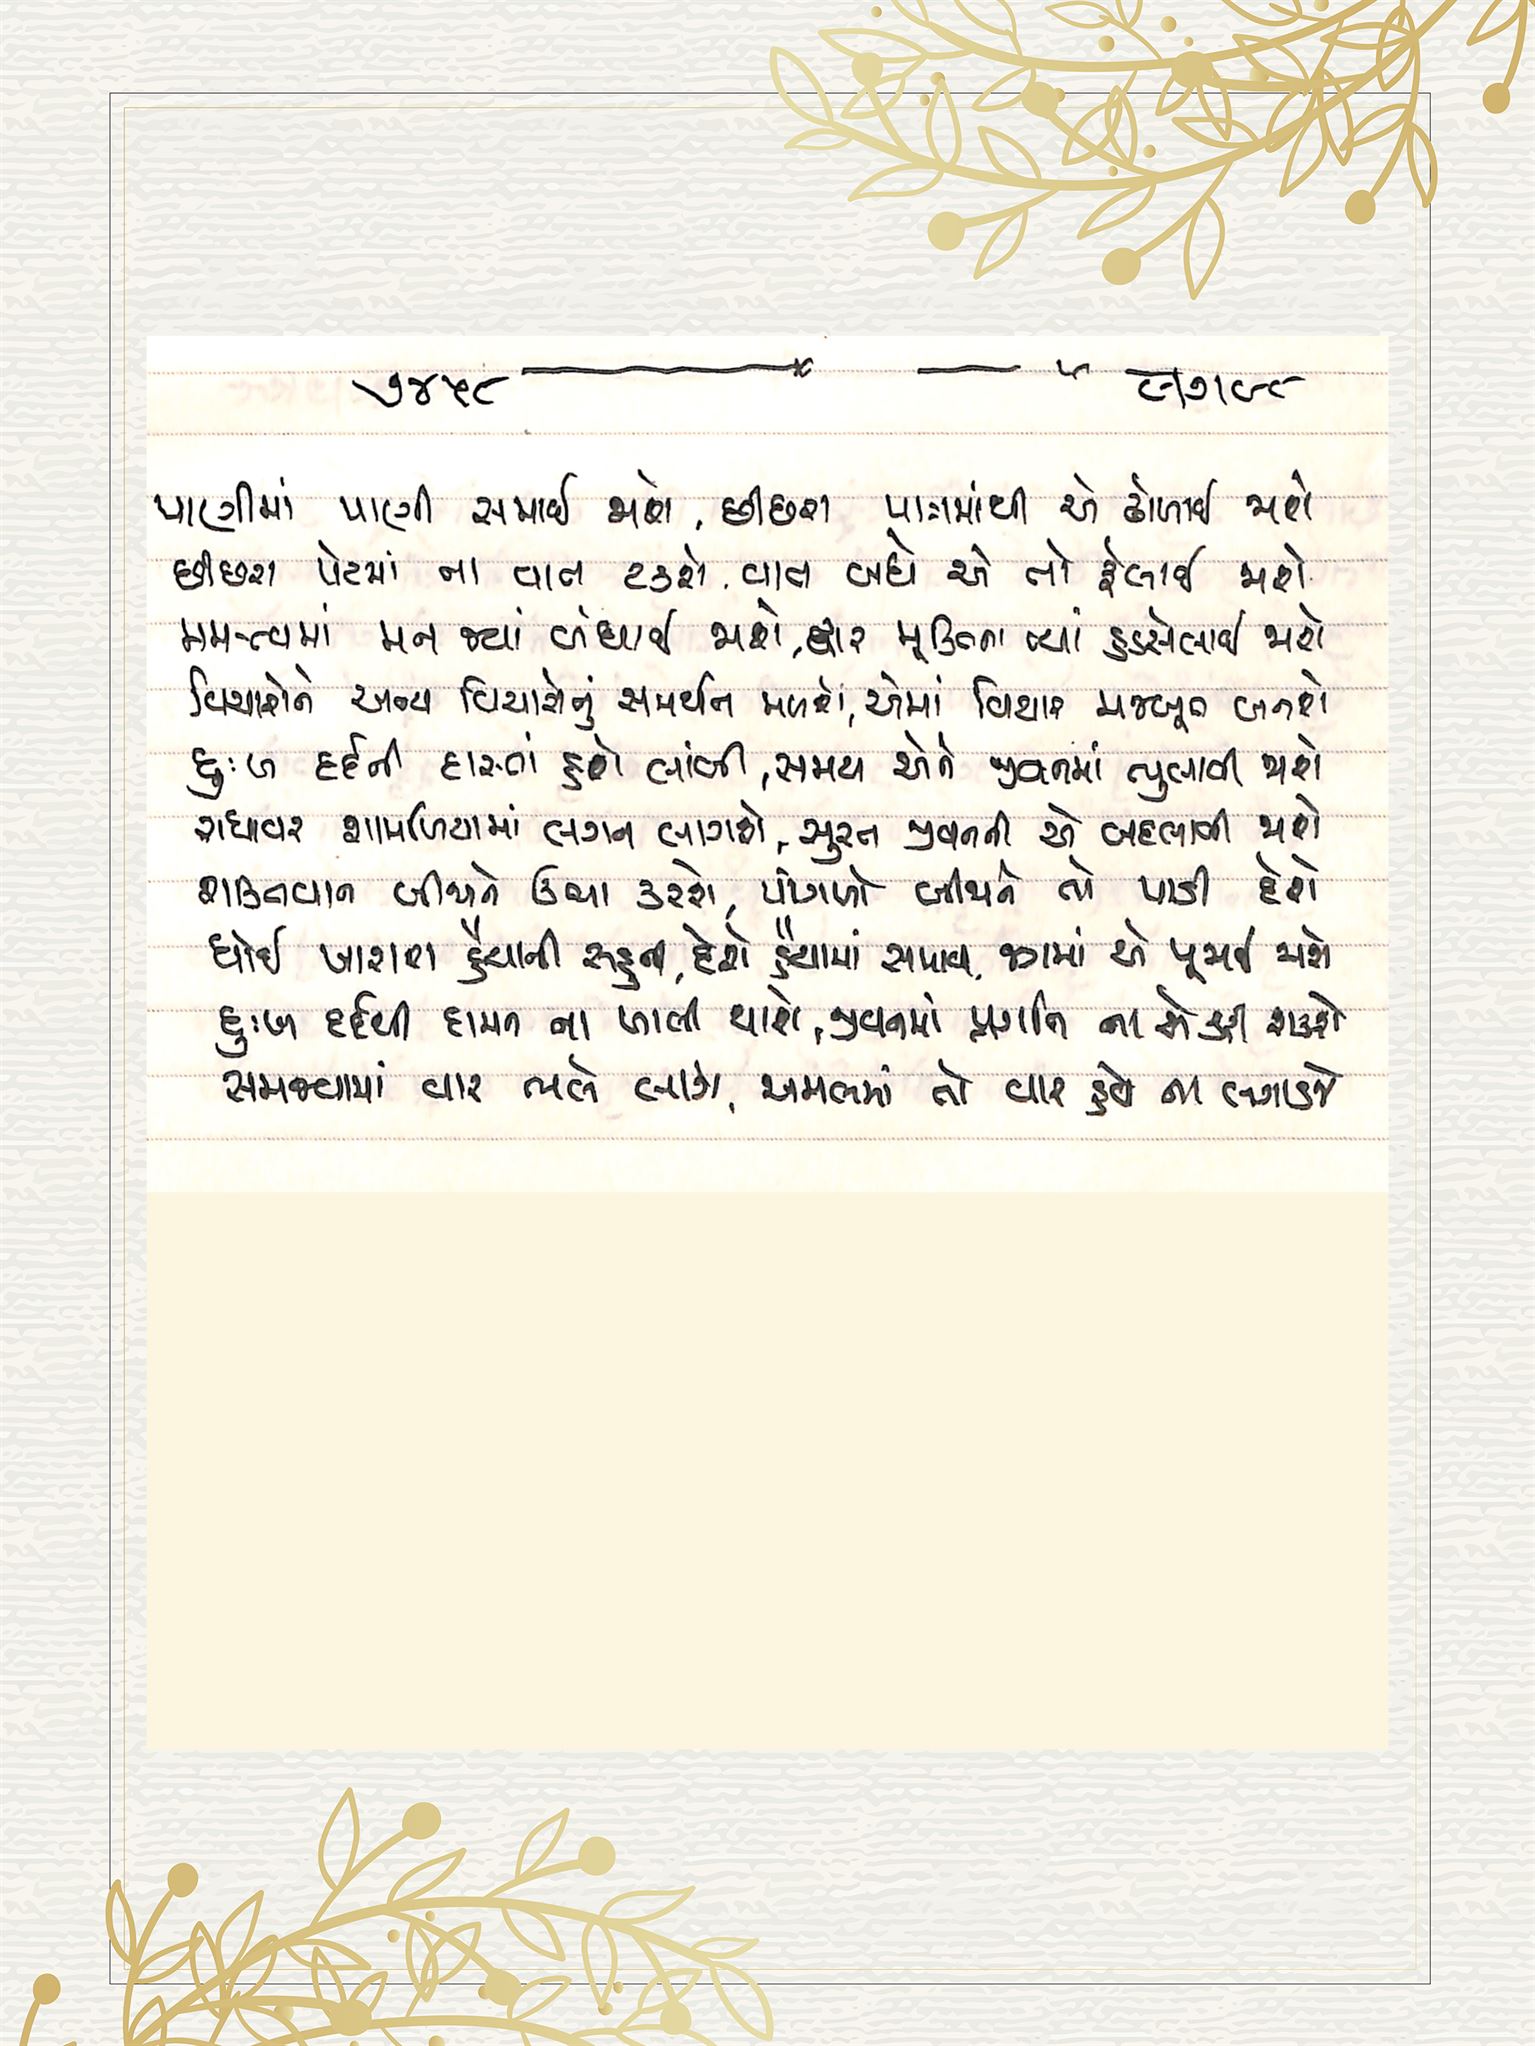 ૭૪૫૮
પાણીમાં પાણી સમાઈ જાશે, છીછરા પાત્રમાંથી એ ઢોળાઈ જાશે
છીછરા પેટમાં ના વાત ટકશે, વાત બધે એ તો ફેલાઈ જાશે
મમત્વમાં મન જ્યાં બંધાઈ જાશે, દ્વાર મૂક્તિના ત્યાં હડસેલાઈ જાશે
વિચારોને અન્ય વિચારોનું સમર્થન મળશે, એમાં વિચાર મજબૂત બનશે
દુઃખ દર્દની દાસ્તાં હશે લાંબી, સમય એને જીવનમાં ભુલાવી જાશે
રાધાવર શામળિયામાં લગન લાગશે, સુરત જીવનની એ બદલાવી જાશે
શક્તિવાન બીજાને ઉંચા કરશે, પાંગળો બીજાને તો પાડી દેશે
ધોઈ ખારાશ હૈયાની રુદન, દેશે હૈયામાં સમાવ, જગમાં એ પૂજાઈ જાશે
દુઃખ દર્દથી દામન ના ખાલી થાશે, જીવનમાં પ્રગતિ ના એ કરી શકશે
સમજવામાં વાર ભલે લાગે, અમલમાં તો વાર હવે ના લગાડજે